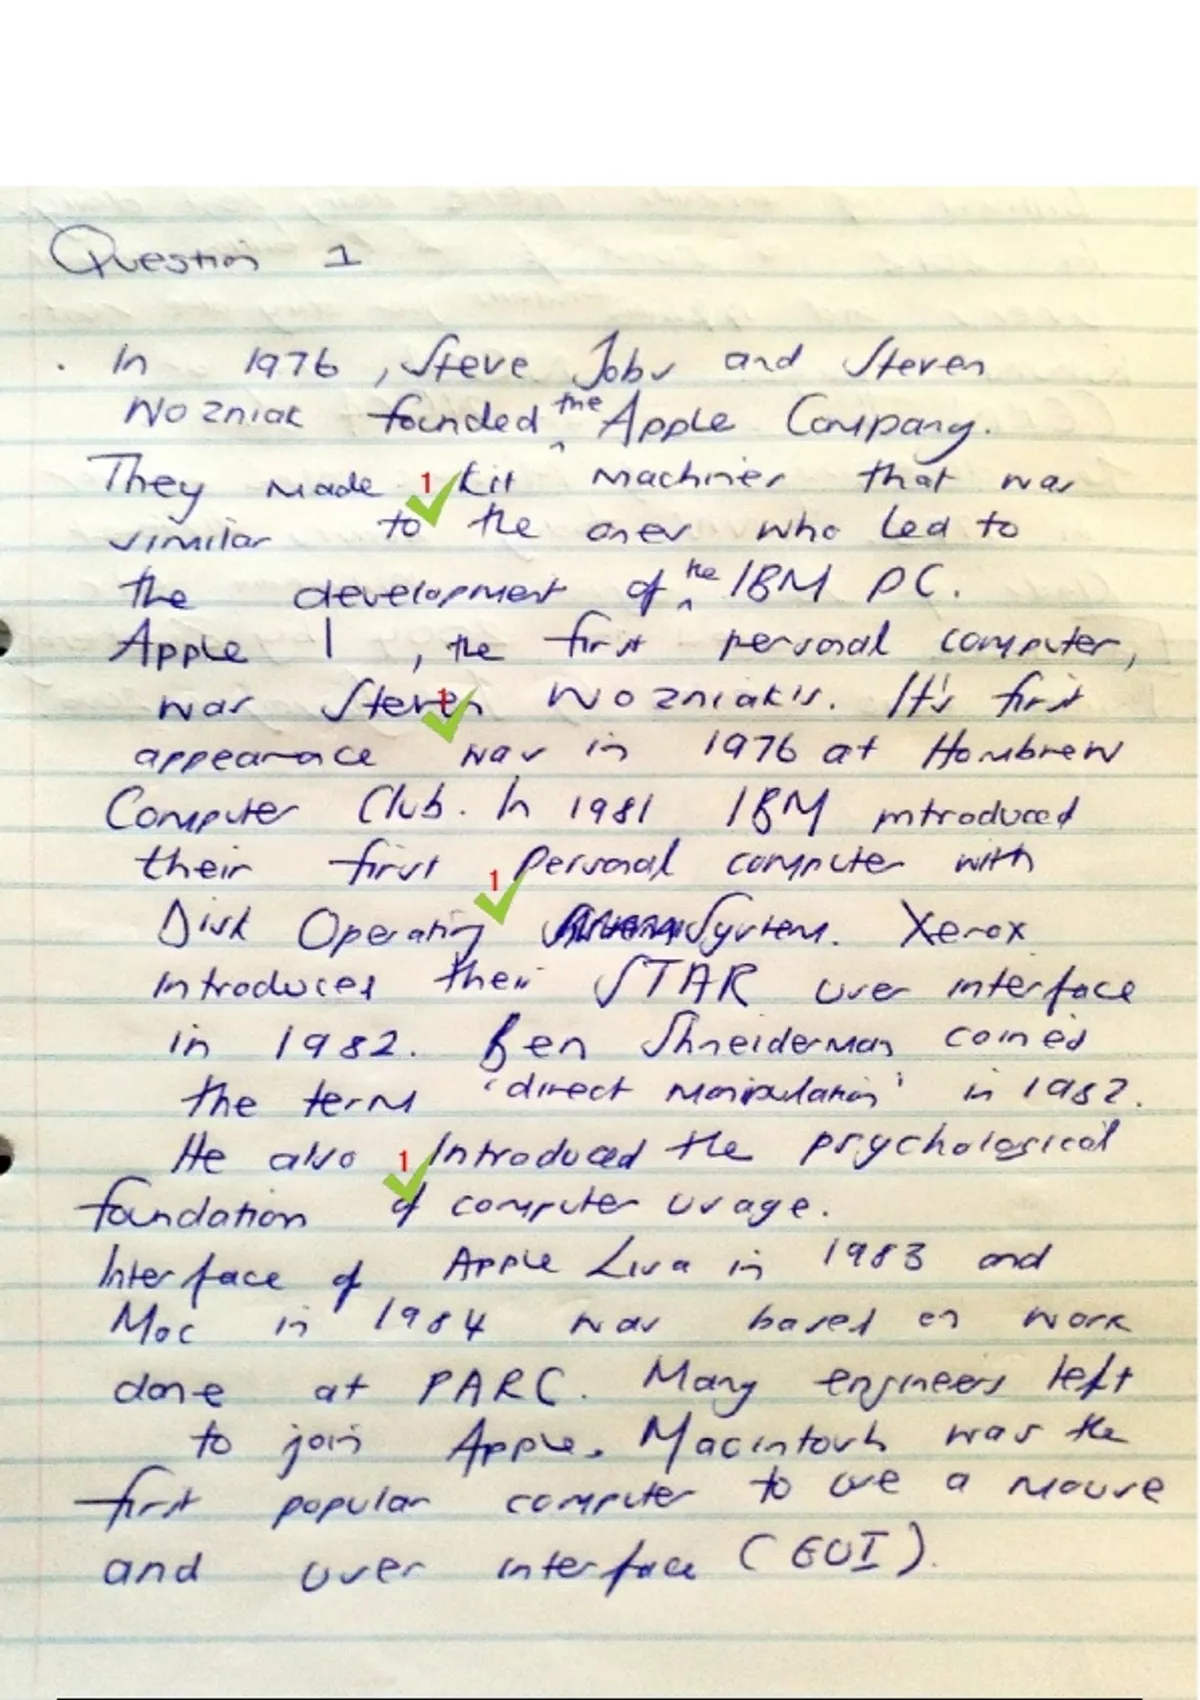 Question 1
. In 1976, Steve Jobs and Steven
Wozniak founded the Apple Company.
They made 1 kit machines that was
similar to the ones who led to
the development of the IBM PC.
Apple I, the first personal computer,
was Steven 1 Wozniak's. It's first
appearance was in 1976 at Hombrew
Computer Club. In 1981 IBM introduced
their first 1 Personal computer with
Disk Operating System. Xerox
introduces their STAR user interface
in 1982. Ben Shneiderman coined
the term 'direct manipulation' in 1982.
He also 1 Introduced the psychological
foundation of computer usage.
Interface of Apple Lisa in 1983 and
Mac in 1984 was based on work
done at PARC. Many engineers left
to join Apple. Macintosh was the
first popular computer to use a mouse
and user interface (GUI).